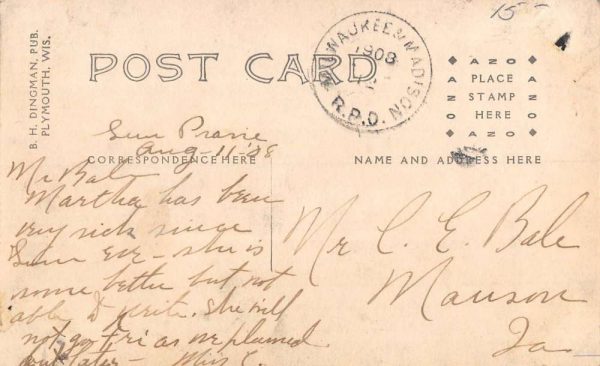 B. H. DINGMAN, PUB.
PLYMOUTH, WIS.
POST CARD
MILWAUKEE & MADISON
1908
R.P.O.
15-
AZO
PLACE
STAMP
HERE
AZO
AZO
AZO
CORRESPONDENCE HERE
NAME AND ADDRESS HERE
Sun Prarie
Aug-11-08
Mr Bale
Martha has been
very sick since
Sun Eve - she is
some better but not
able to write. She will
not go Fri as we planned
but later - Miss C.
Mr C. E. Bale
Manson
Ia